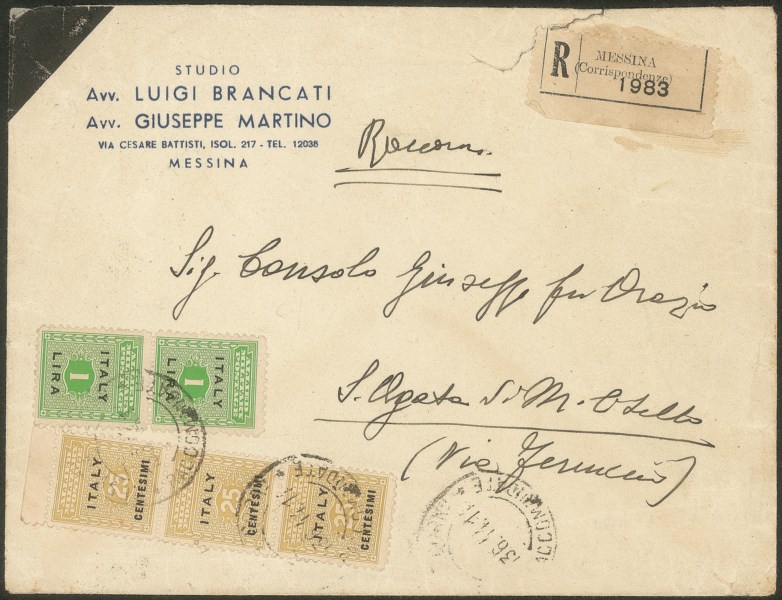 STUDIO
Avv. LUIGI BRANCATI
Avv. GIUSEPPE MARTINO
VIA CESARE BATTISTI, ISOL. 217 - TEL. 12038
MESSINA
R
MESSINA
(Corrispondenze)
1983
Sig. Consolo Giuseppe fu Orazio
S. Agata di M.
(Via
ITALY
1
LIRA
ITALY
1
LIRA
ITALY
25
CENTESIMI
ITALY
25
CENTESIMI
ITALY
25
CENTESIMI